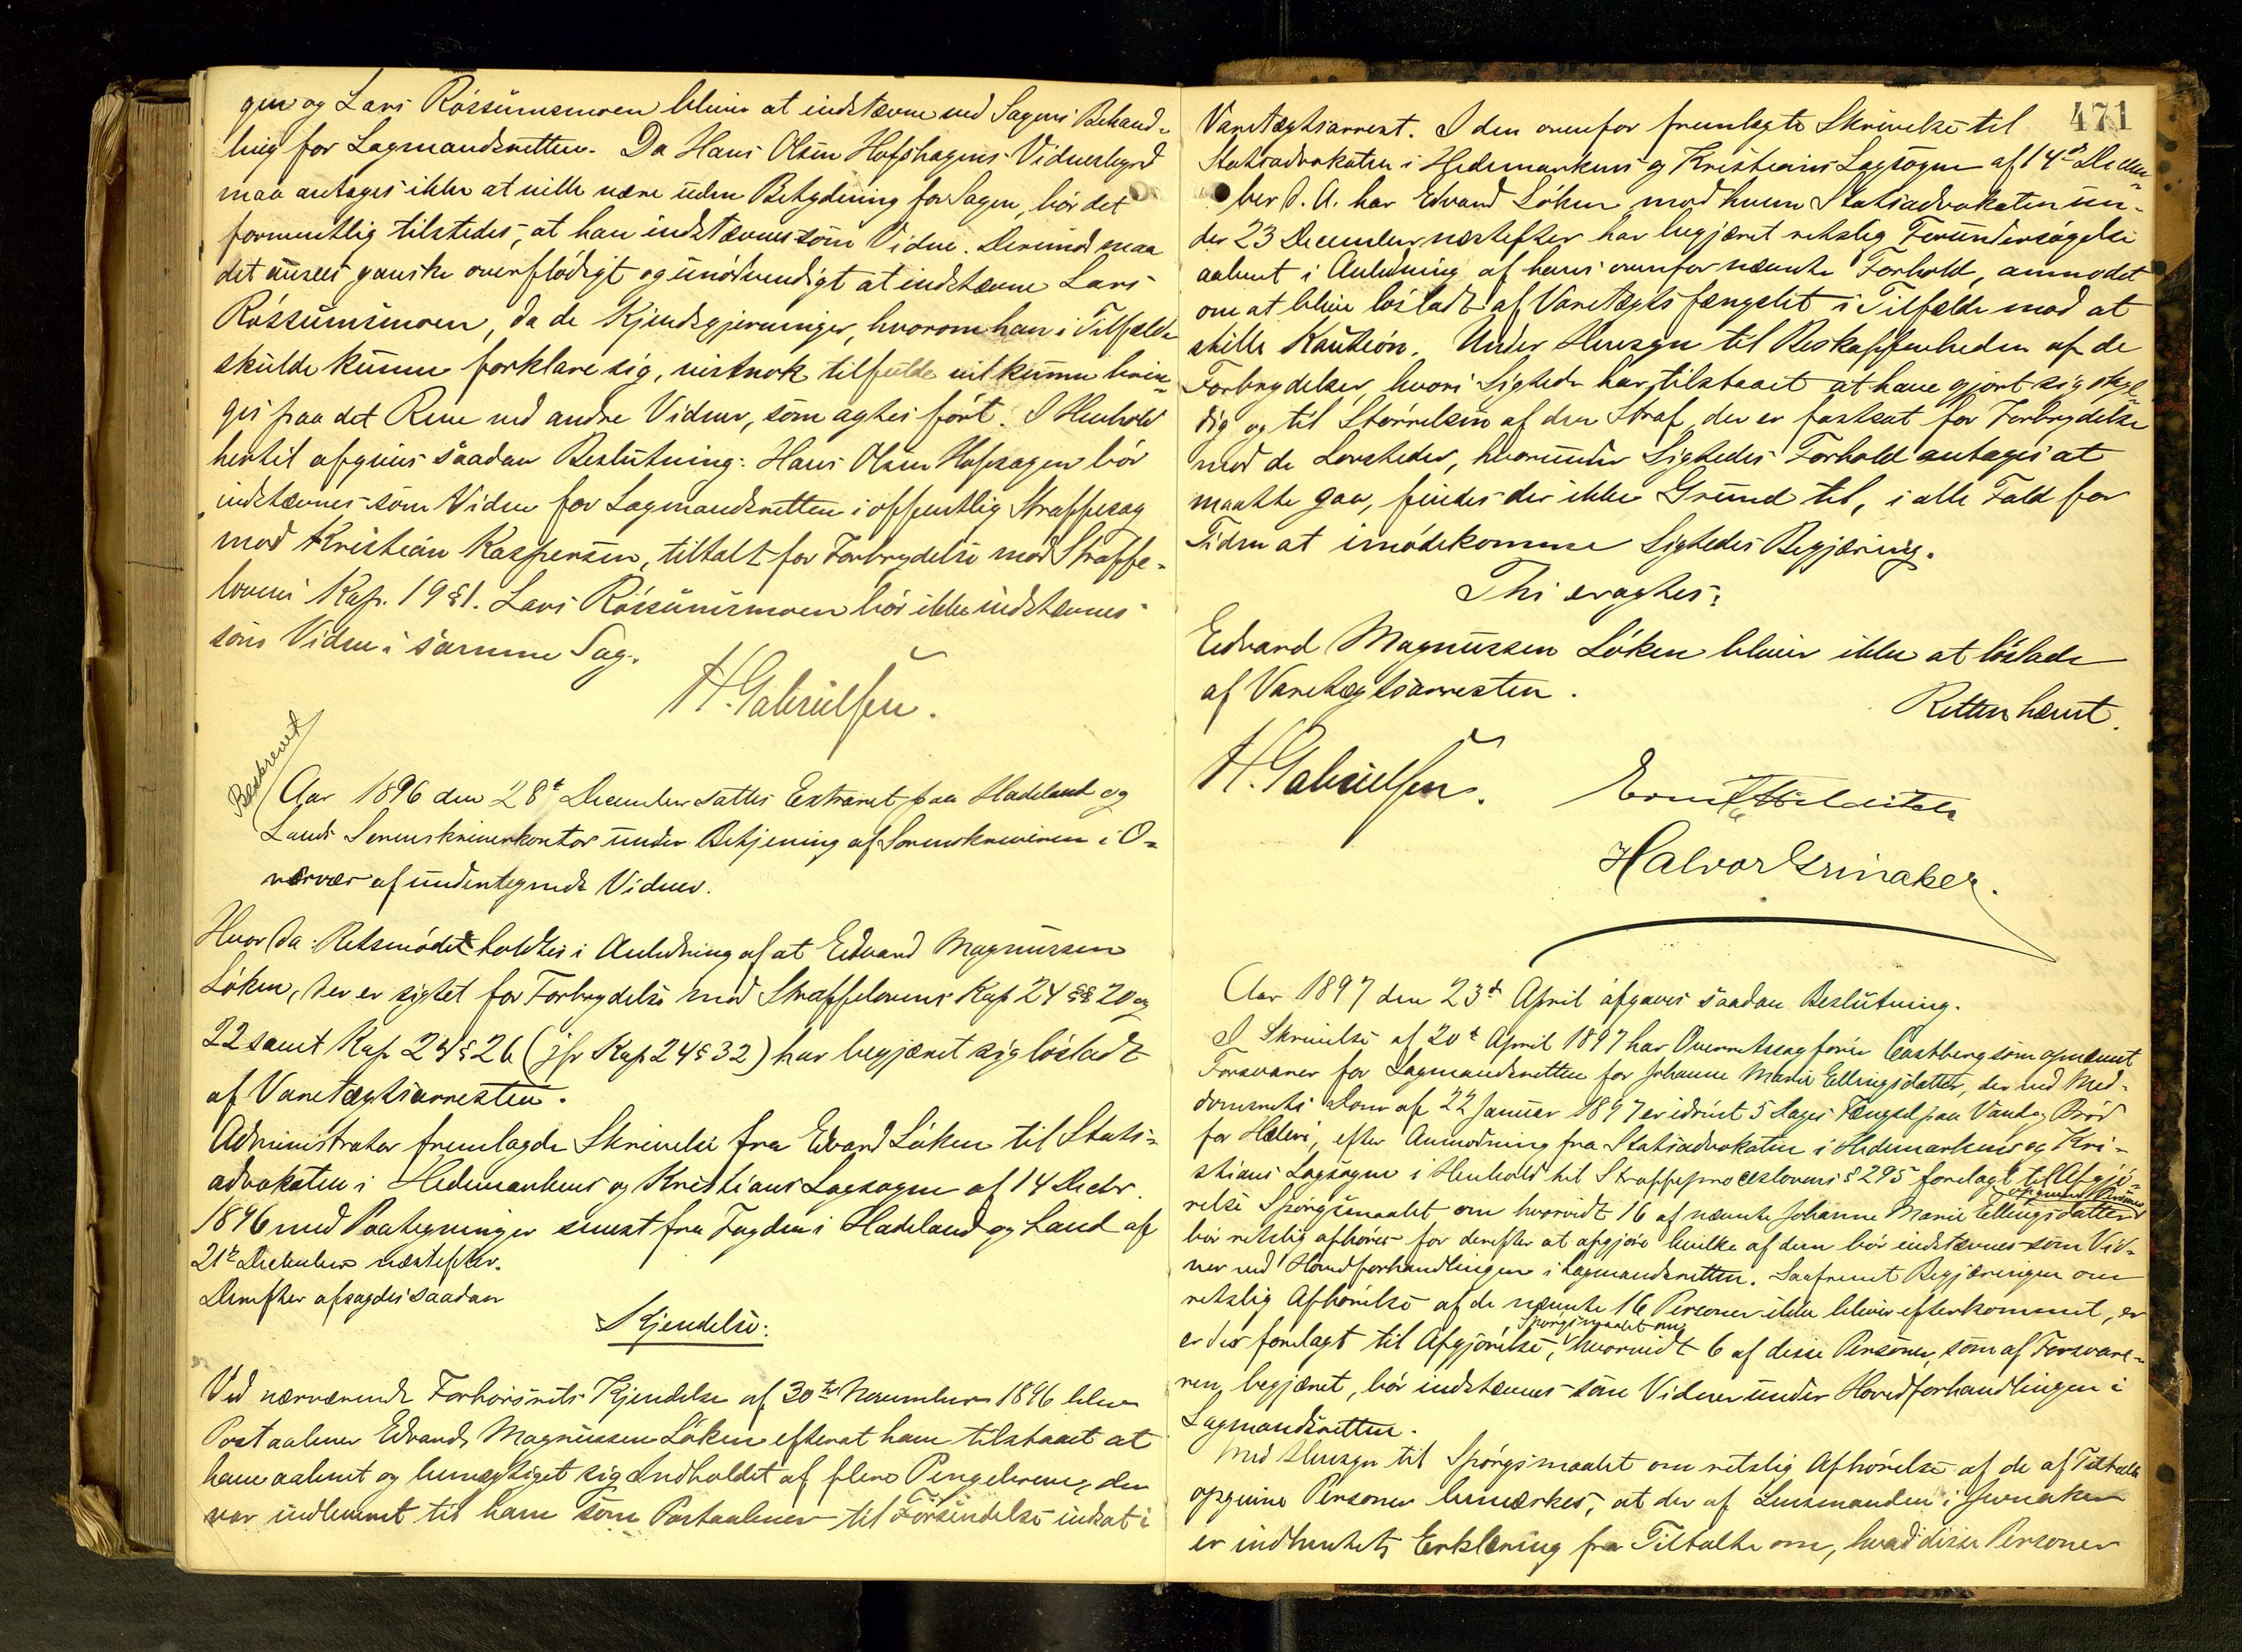 gen og Lars Røssumsmoen bliver at indstævne ved Sagens Behand-
ling for Lagmandsretten. Da Hans Olsen Hofshagens Vidnesbyrd
maa antages ikke at ville være uden Betydning for Sagen, bör det
formentlig tilstedes, at han indstævnes som Vidne. Derimod maa
det ansees ganske overflödigt og unödvendigt at indstævne Lars
Røssumsmoen, da de Kjendsgjerninger, hvorom han i Tilfælde
skulde kunne forklare sig, vistnok tilfulde vil kunne brin-
ges paa det Rene ved andre Vidner, som agtes fört. I Henhold
hertil afgives saadan Beslutning: Hans Olsen Hofsagen bör
indstævnes som Vidne for Lagmandsretten i offentlig Straffesag
mod Kristian Kaspersen, tiltalt for Forbrydelse mod Straffe-
lovens Kap. 19 § 1. Lars Røssumsmoen bör ikke indstævnes
som Vidne i samme Sag.
H. Gabrielsen.
Beskrevet
Aar 1896 den 28de December sattes Extraret paa Hadeland og
Lands Sorenskriverkontor under Betjening af Sorenskriveren i O-
vervær af undertegnede Vidner.
Hvor da: Retsmödet holdtes i Anledning af at Edvard Magnussen
Löken, der er sigtet for Forbrydelse mod Straffelovens Kap 24 §§ 20 og
22 samt Kap 24 § 26 (jfr Kap 24 § 32) har begjæret sig lösladt
af Varetægtsarresten.
Administrator fremlagde Skrivelse fra Edvard Löken til Stats-
advokaten i Hedemarkens og Kristians Lagsogne af 14 Decbr.
1896 med Paategninger senest fra Fogden i Hadeland og Land af
21de December næstefter.
Derefter afsagdes saadan
Kjendelse:
Ved nærværende Forhörsrets Kjendelse af 30te November 1896 blev
Postaabner Edvard Magnussen Löken efterat have tilstaaet at
have aabnet og bemægtiget sig Indholdet af flere Pengebreve, der
var indleveret til ham som Postaabner til Forsendelse indsat i
471
Varetægtsarrest. I den ovenfor fremlagte Skrivelse til
Statsadvokaten i Hedemarkens og Kristians Lagsogne af 14de Decem-
ber d. A. har Edvard Löken mod hvem Statsadvokaten un-
der 23 December næstefter har begjæret retslig Forundersögelse
aabnet i Anledning af hans ovenfor nævnte Forhold, anmodet
om at blive lösladt af Varetægtsfængslet i Tilfælde mod at
stille Kaution. Under Hensyn til Beskaffenheden af de
Forbrydelser, hvori Sigtede har tilstaaet at have gjort sig skyl-
dig og til Störrelsen af den Straf, der er fastsat for Forbrydelse
mod de Lovsteder, hvorunder Sigtedes Forhold antages at
maatte gaa, findes der ikke Grund til, i alle Fald for
Tiden at imödekomme Sigtedes Begjæring.
Thi eragtes:
Edvard Magnussen Löken bliver ikke at löslade
af Varetægtsarresten.
Retten hævet.
H. Gabrielsen.
Halvor Grinaker.
Aar 1897 den 23de April afgaves saadan Beslutning.
I Skrivelse af 20de April 1897 har Overretssagförer Castberg som opnævnt
Forsvarer for Lagmandsretten for Johanne Marie Ellingsdatter, der ved Med-
domsrets Dom af 22 Januar 1897 er idömt 5 Dages Fængsel paa Vand og Bröd
for Hæleri, efter Anmodning fra Statsadvokaten i Hedemarkens og Kri-
stians Lagsogne i Henhold til Straffeprocesloven § 295 forelagt til Afgjö-
relse Spörgsmaalet om hvorvidt 16 af nævnte Johanne Marie Ellingsdatter opgivne Personer
bör retslig afhöres for derefter at afgjöre hvilke af dem bör indstævnes som Vid-
ner ved Hovedforhandlingen i Lagmandsretten. Saafremt Begjæringen om
retslig Afhörelse af de nævnte 16 Personer ikke bliver efterkommet, er
er der forelagt til Afgjörelse, Spörgsmaalet om hvorvidt 6 af disse Personer, som af Forsvare-
ren begjæret, bör indstævnes som Vidner under Hovedforhandlingen i
Lagmandsretten.
Med Hensyn til Spörgsmaalet om retslig Afhörelse af de af Tiltalte
opgivne Personer bemærkes, at der af Lensmanden i Jevnaker
er indhentet Erklæring fra Tiltalte om, hvad disse Personer